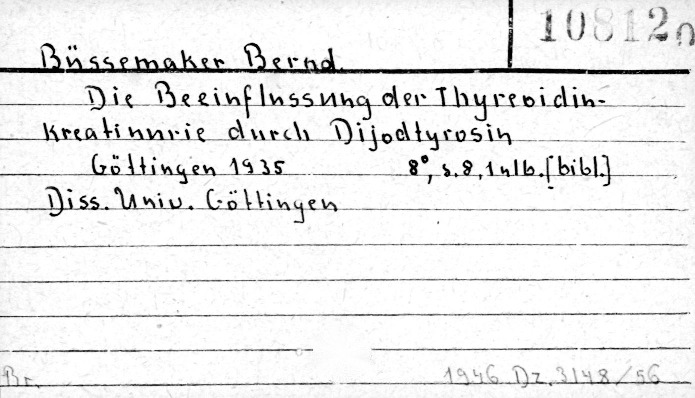 108120
Büssemaker Bernd.
Die Beeinflussung der Thyreoidin-
Kreatinurie durch Dijodtyrosin
Göttingen 1935 8°, s. 8, 1 nlb. [bibl.]
Diss. Univ. Göttingen
Br. 1946 Dz. 3148/56